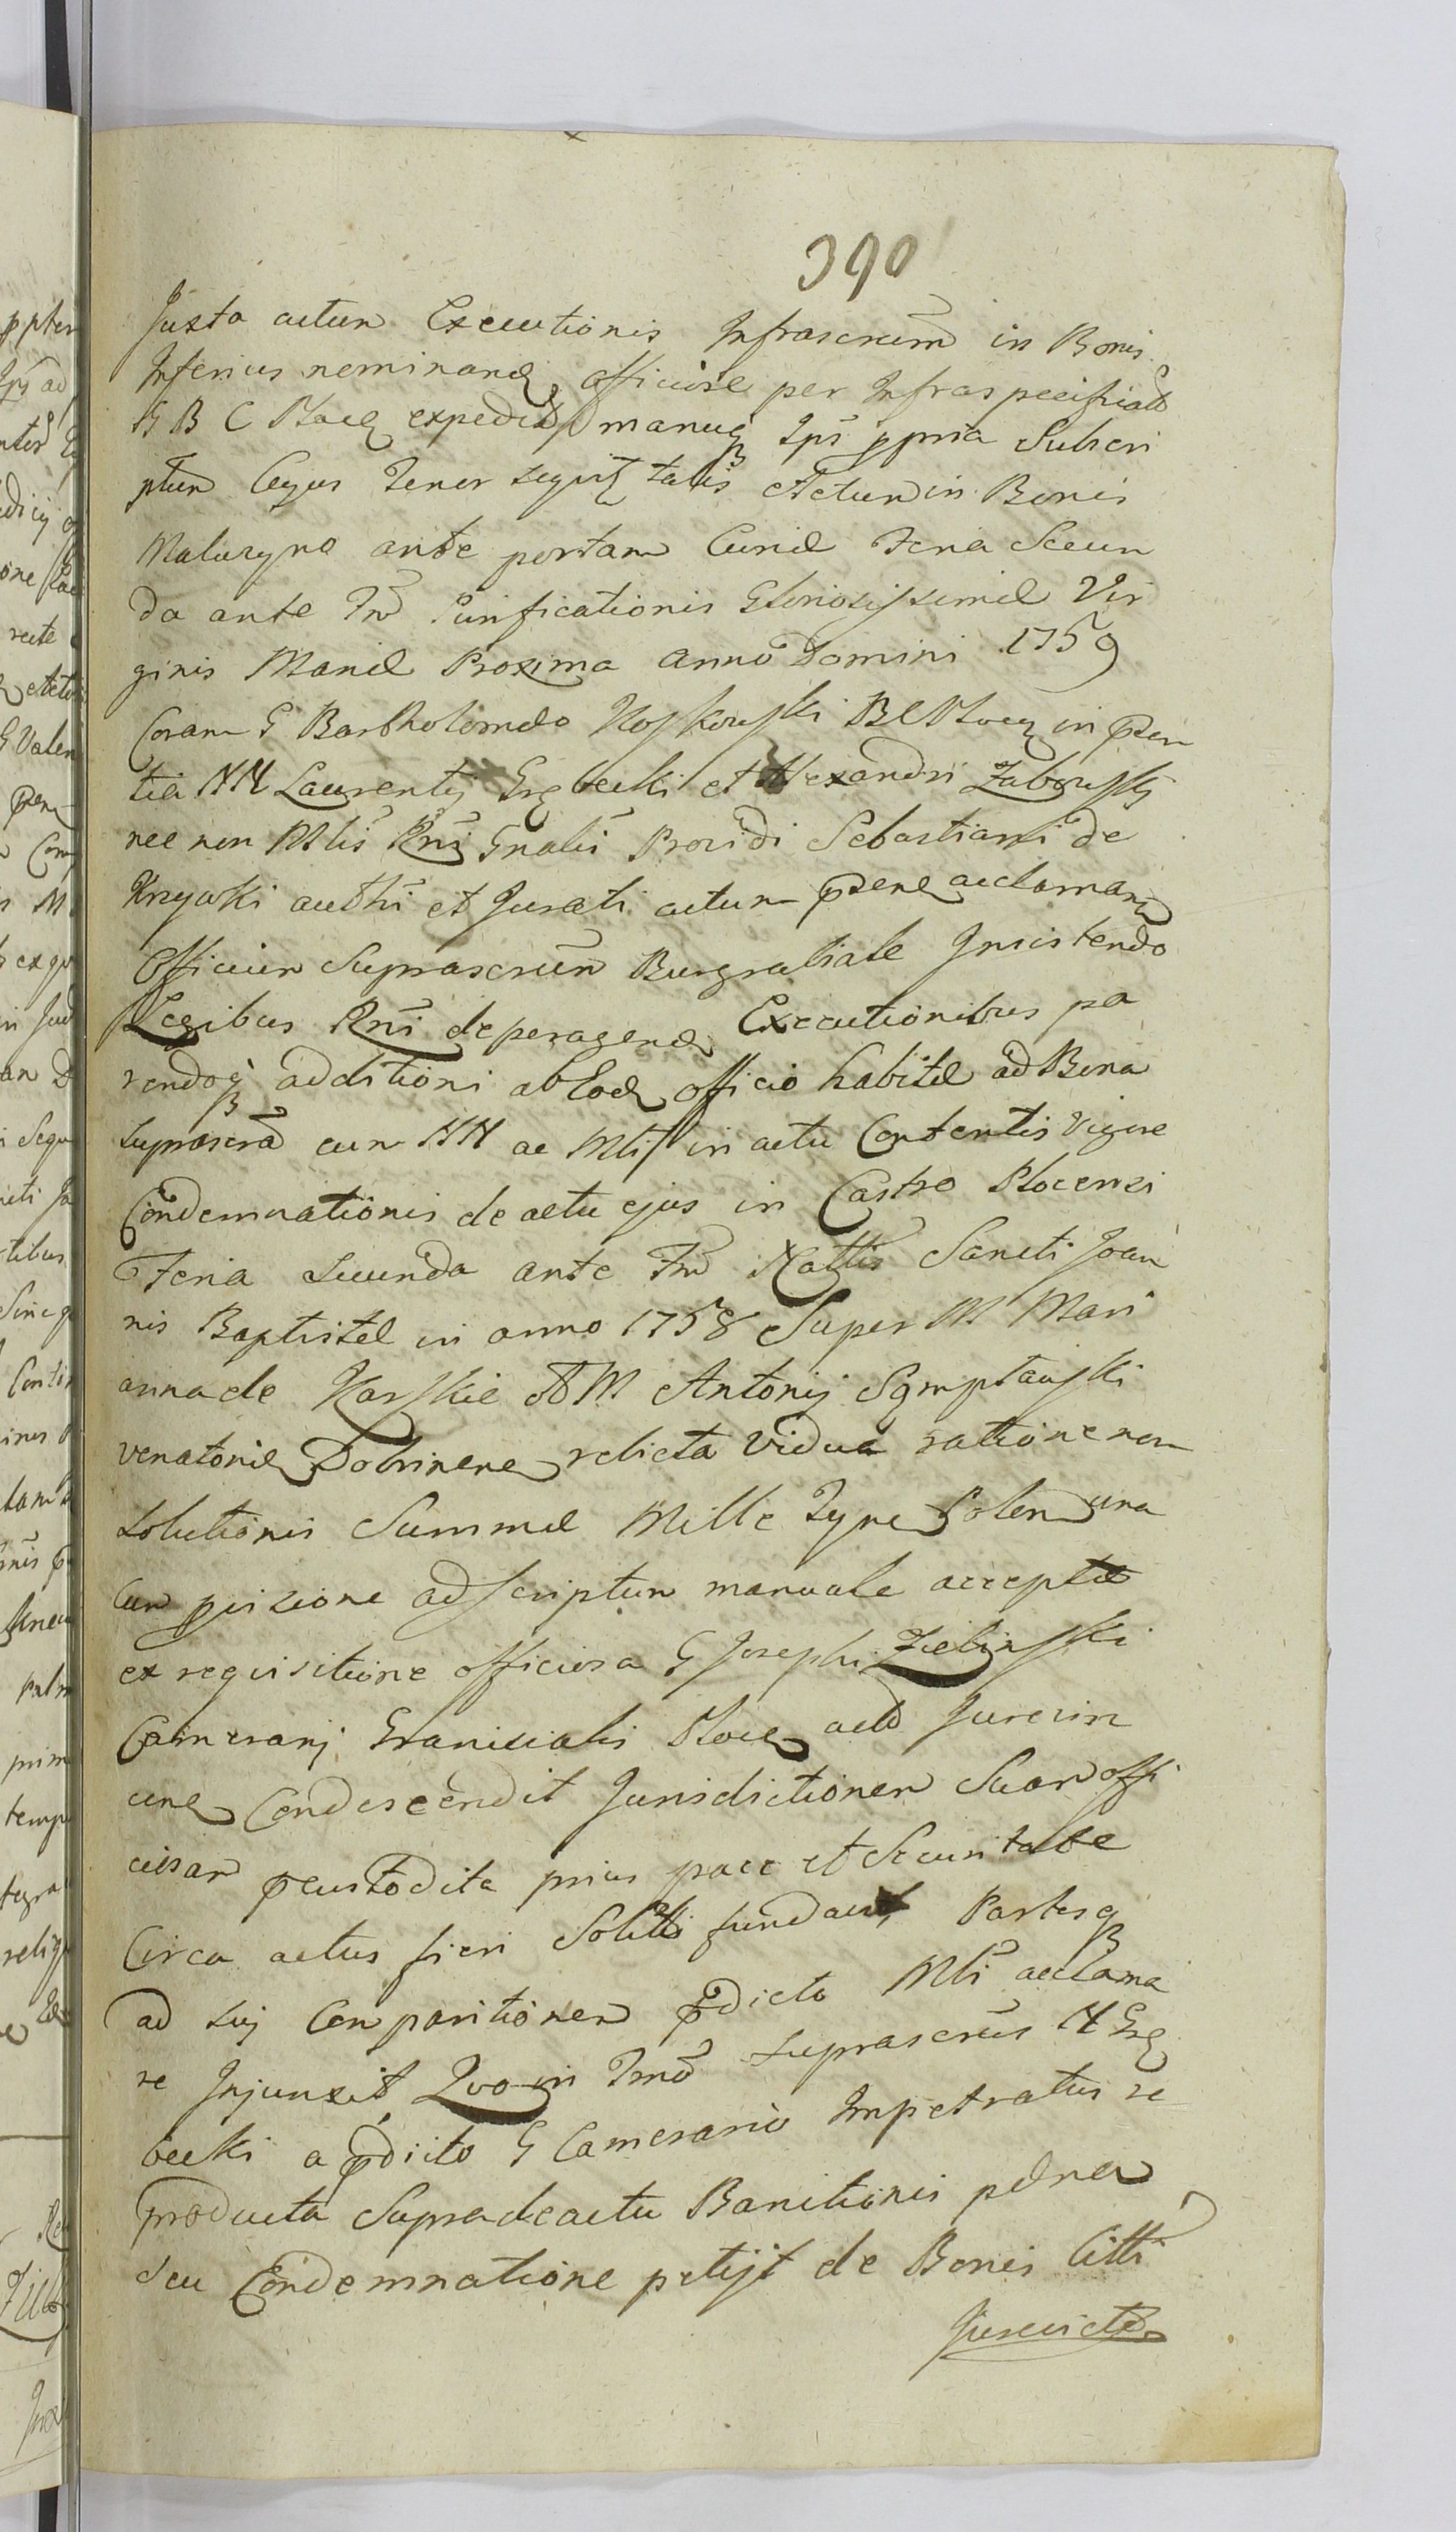 390
Juxta actum Executionis Infrascrum in Bonis
Inferius nominand officiose per Infraspecificatu
G B C Ploce expeditu manuq Ips ppria Subscri
ptum Cujus Tenor sequit talis Actum in Bonis
Maluzyno ante portam Curiæ Feria Secun
da ante Fm Purificationis Gloriosissimæ Vir
ginis Mariæ Proxima Anno Domini 1759
Coram G Bartholomeo BC Ploce in pen
tia NN Laurentij Grzbecki et Alexandri Zaborski
nec non Mlis Rni Gnalis Providi Sebastiani de
Krzywki authi et Jurati actum pene acclaman
Officium Suprascrum Burgrabiale Insistendo
Legibus Rni de peragend Executionibus pa
rendoq additioni ab Eod officio habitæ ad Bona
suprascra cum NN ac Mli in actu Contentis Vigore
Condemnationis de actu ejus in Castro Plocensi
Feria secunda ante Fm Nattis Sancti Joan
nis Baptistæ in anno 1758 Super M Mari
anna de Karskie M Antonij Symptawski
venatoris Dobrinen relicta Vidua ratione non
solutionis Summæ Mille Tynf Polon una
cum pvisione ad scriptum manuale acceptæ
ex requisitione officiosa G Josephi Zielinski
Camerarij Granicialis Ploce actu Jurevin
cen Condescendit Jurisdictionem Suam offi
ciosam pcustodita prius pace et Securitate
Circa actus fieri Solitti fundavit Partesq
ad sui Comparitionem pdicto Mli acclama
re Injunxit Quo in Tmo suprascrus N Grz
becki a pdicto G Camerario Impetratus re
producta Supra de actu Banitionis pæna
seu Condemnatione petijt de Bonis Citti
Jurevictæ